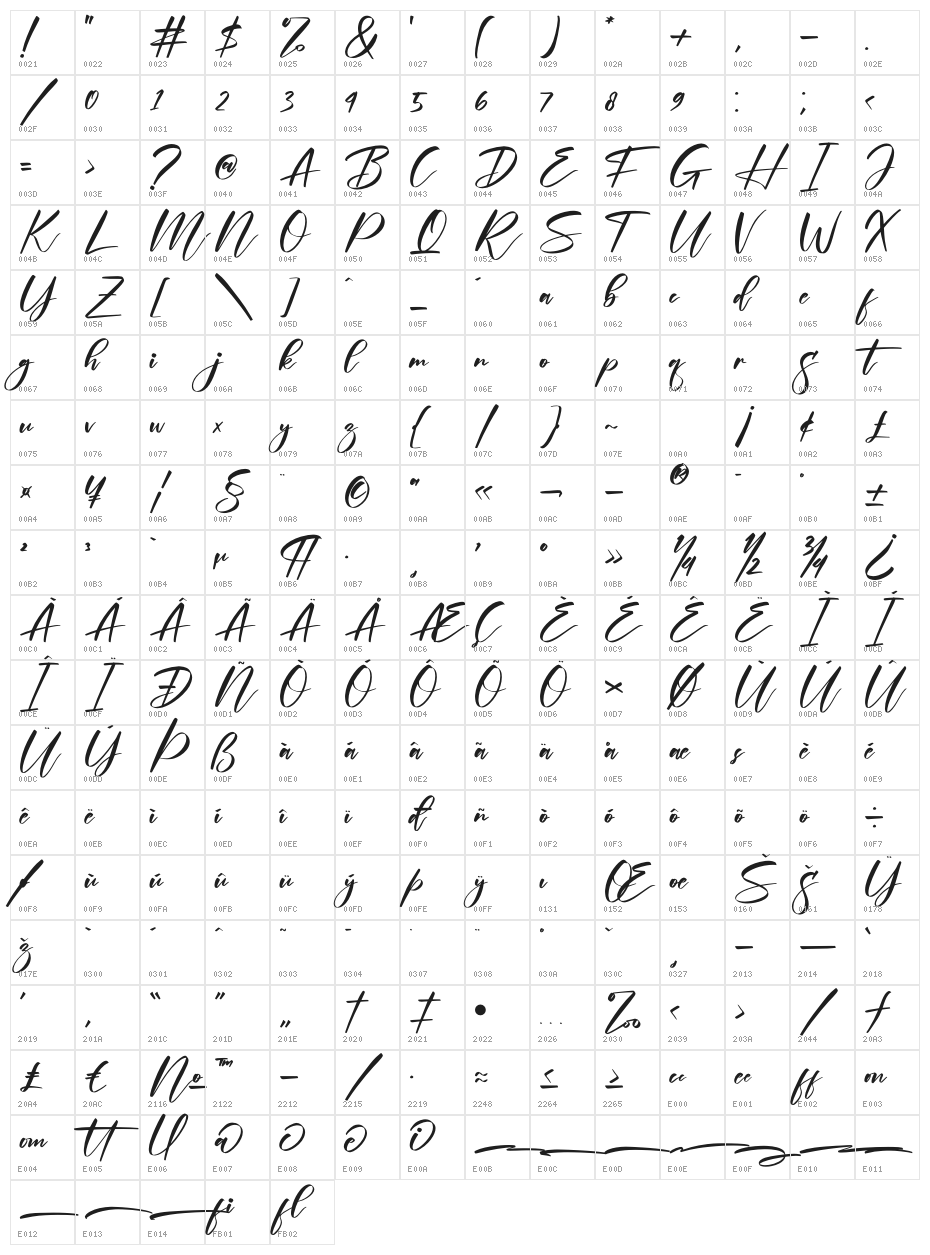 ! " # $ % & ' ( ) * + , - .
0021 0022 0023 0024 0025 0026 0027 0028 0029 002A 002B 002C 002D 002E
/ 0 1 2 3 4 5 6 7 8 9 : ; <
002F 0030 0031 0032 0033 0034 0035 0036 0037 0038 0039 003A 003B 003C
= > ? @ A B C D E F G H I J
003D 003E 003F 0040 0041 0042 0043 0044 0045 0046 0047 0048 0049 004A
K L M N O P Q R S T U V W X
004B 004C 004D 004E 004F 0050 0051 0052 0053 0054 0055 0056 0057 0058
Y Z [ \ ] ^ _ ` a b c d e f
0059 005A 005B 005C 005D 005E 005F 0060 0061 0062 0063 0064 0065 0066
g h i j k l m n o p q r s t
0067 0068 0069 006A 006B 006C 006D 006E 006F 0070 0071 0072 0073 0074
u v w x y z { | } ~ ¡ ¢ £
0075 0076 0077 0078 0079 007A 007B 007C 007D 007E 00A0 00A1 00A2 00A3
¤ ¥ ¦ § ¨ © ª « ¬ - ® ¯ ° ±
00A4 00A5 00A6 00A7 00A8 00A9 00AA 00AB 00AC 00AD 00AE 00AF 00B0 00B1
² ³ ´ µ ¶ · ¸ ¹ º » ¼ ½ ¾ ¿
00B2 00B3 00B4 00B5 00B6 00B7 00B8 00B9 00BA 00BB 00BC 00BD 00BE 00BF
À Á Â Ã Ä Å Æ Ç È É Ê Ë Ì Í
00C0 00C1 00C2 00C3 00C4 00C5 00C6 00C7 00C8 00C9 00CA 00CB 00CC 00CD
Î Ï Ð Ñ Ò Ó Ô Õ Ö × Ø Ù Ú Û
00CE 00CF 00D0 00D1 00D2 00D3 00D4 00D5 00D6 00D7 00D8 00D9 00DA 00DB
Ü Ý Þ ß à á â ã ä å æ ç è é
00DC 00DD 00DE 00DF 00E0 00E1 00E2 00E3 00E4 00E5 00E6 00E7 00E8 00E9
ê ë ì í î ï ð ñ ò ó ô õ ö ÷
00EA 00EB 00EC 00ED 00EE 00EF 00F0 00F1 00F2 00F3 00F4 00F5 00F6 00F7
ø ù ú û ü ý þ ÿ ı Œ œ Š š Ÿ
00F8 00F9 00FA 00FB 00FC 00FD 00FE 00FF 0131 0152 0153 0160 0161 0178
ž ̀ ́ ̂ ̃ ̄ ̇ ̈ ̊ ̌ ̧ – — ‘
017E 0300 0301 0302 0303 0304 0307 0308 030A 030C 0327 2013 2014 2018
’ ‚ “ ” „ † ‡ • … ‰ ‹ › ⁄ ₣
2019 201A 201C 201D 201E 2020 2021 2022 2026 2030 2039 203A 2044 20A3
₤ € № ™ − ∕ ∙ ≈ ≤ ≥ cc ee ff on
20A4 20AC 2116 2122 2212 2215 2219 2248 2264 2265 E000 E001 E002 E003
om tt ll a c e i
E004 E005 E006 E007 E008 E009 E00A E00B E00C E00D E00E E00F E010 E011
fi fl
E012 E013 E014 FB01 FB02